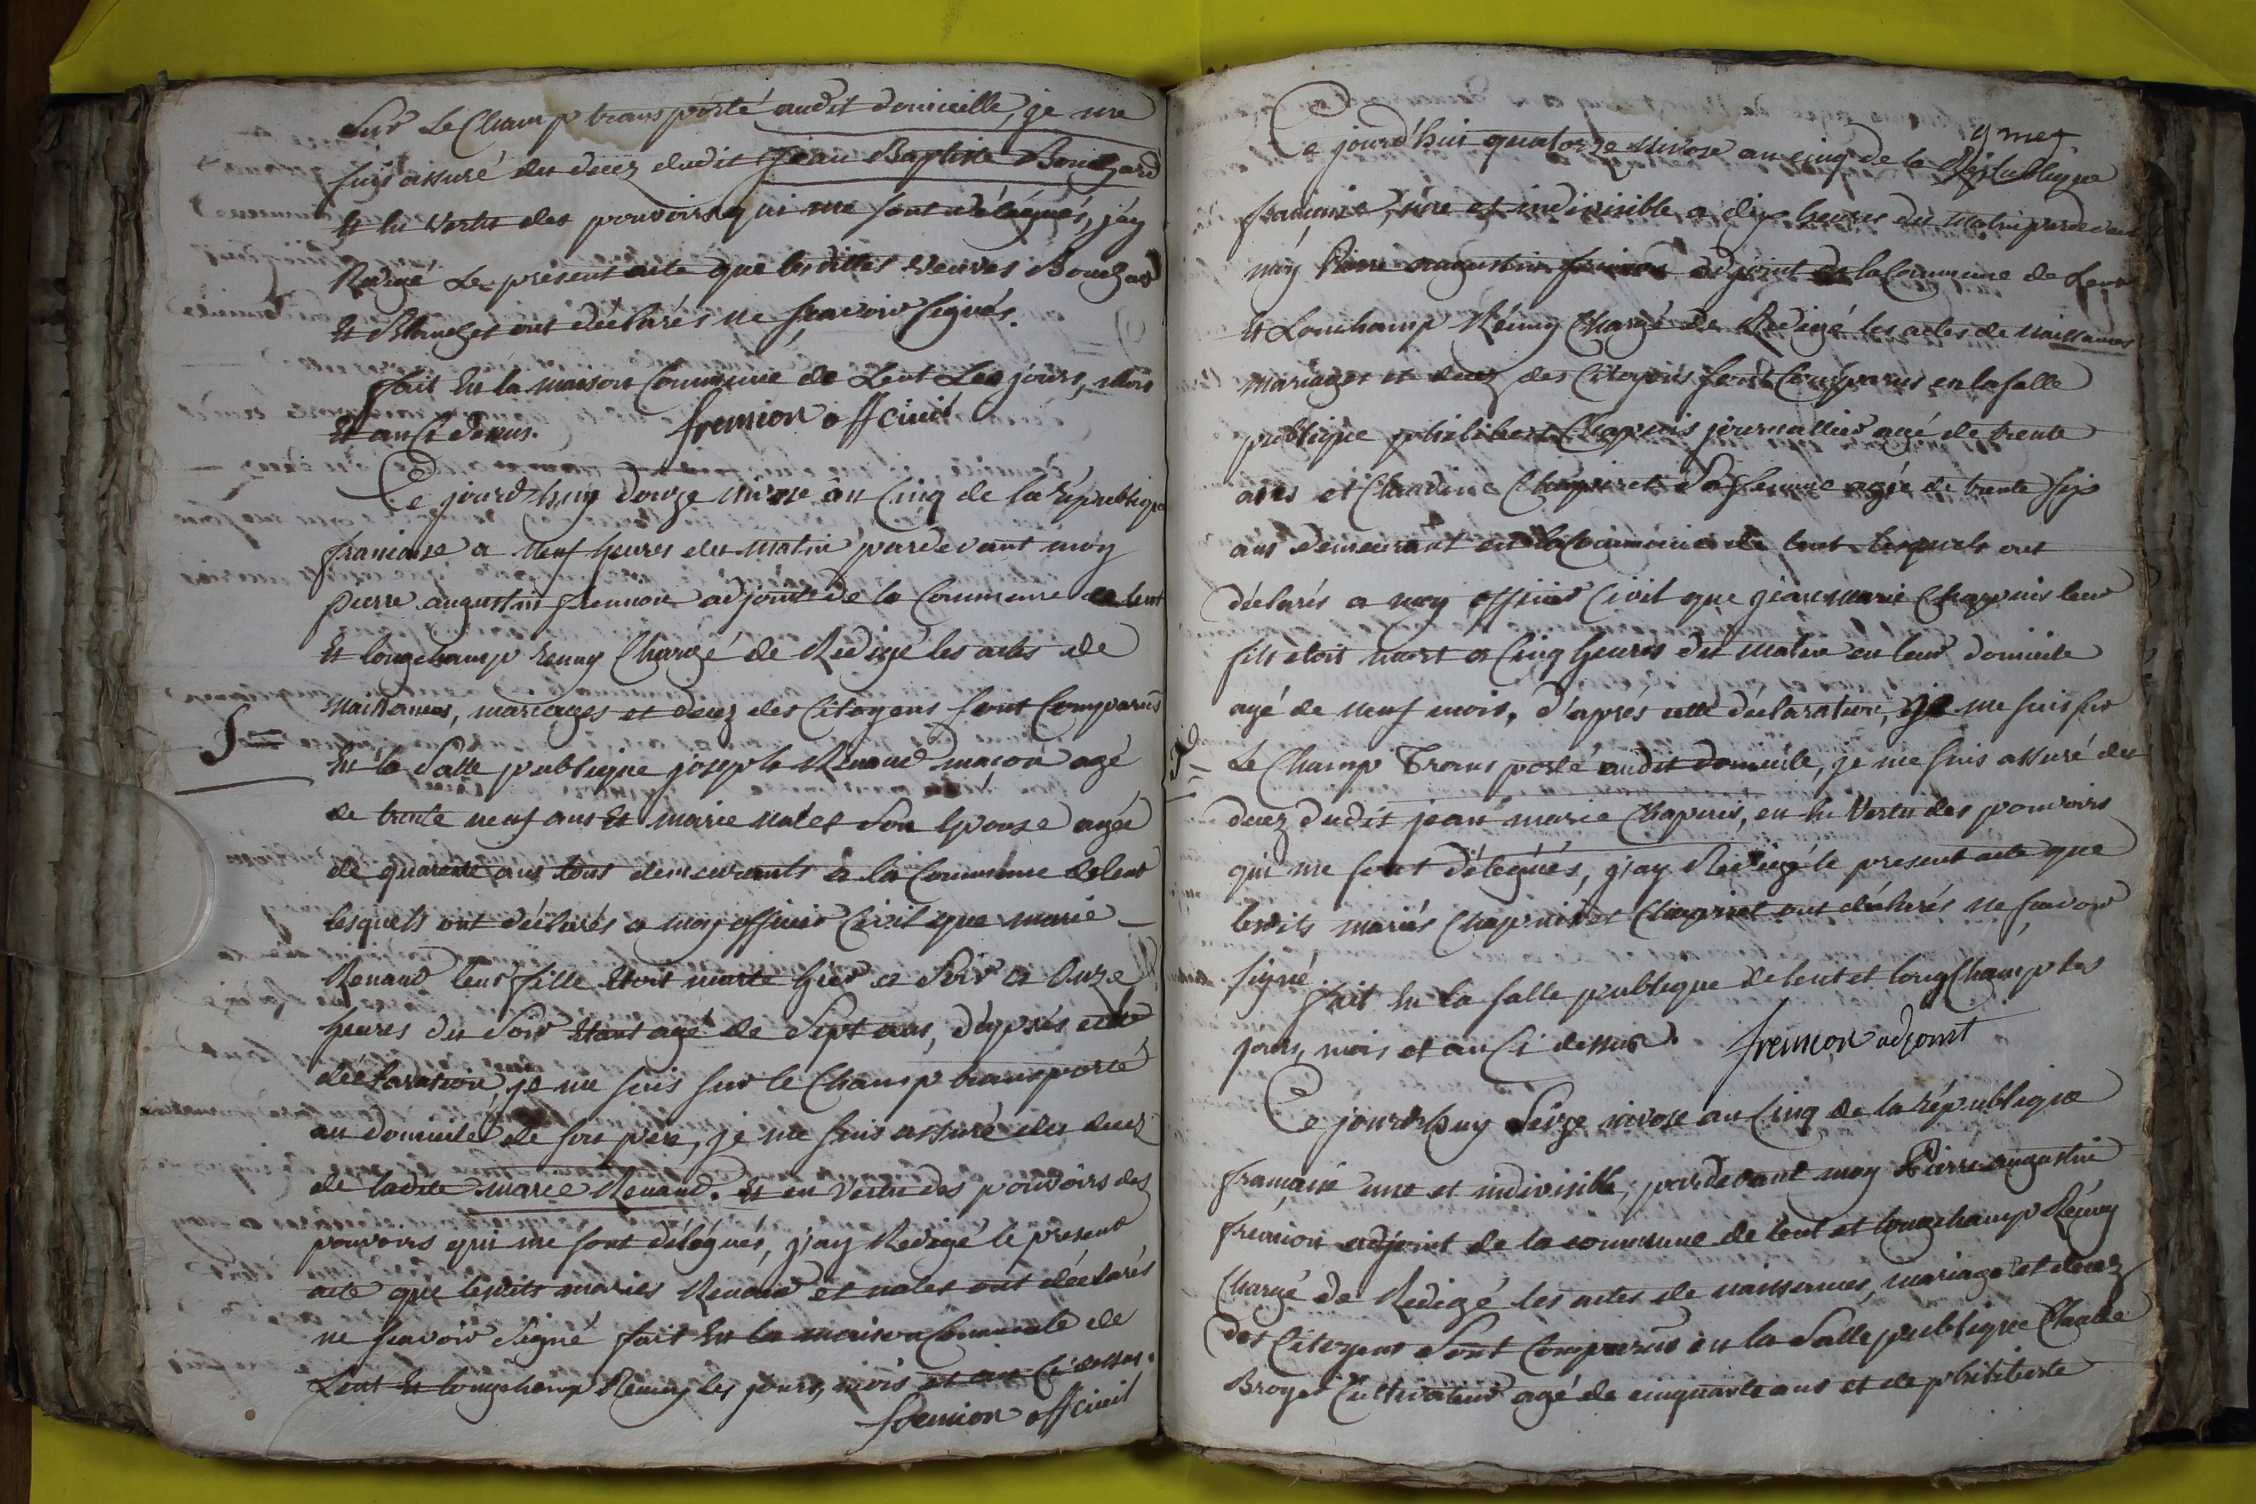 Sur Le Champ transporté audit domicille, je me
suis assuré du decez dudit Jean Baptiste Bouchard
Et En Vertu des pouvoirs qui me sont délégués, j'ay
Redigé Le present acte que les dittes Veuves Bouchard
Et ont déclarés ne sçavoir signés.
fait En la maison Commune de Lent Les jours, mois
Et an Ci dessus. fremion off civil
Ce jourd'huy douze nivose an Cinq de la République
francaise a Neuf heures du Matin pardevant moy
pierre augustin fremion adjoint de la Commune de lent
Et longchamp Reuny Chargé de Redigé les actes de
Naissances, mariages et decez des Citoyens sont Comparus
5
En la Salle publique joseph Renaud maçon agé
de trente neuf ans Et marie nales Son Epouse agée
de quarente ans tous demeurants a la Commune de lent
lesquels ont déclarés a moy officier Civil que marie
Renaud leur fille Etoit morte hier a Soir a Onze
heures du Soir Etant agé de Sept ans, d'après cette
déclaration, je me suis sur le Champ transporté
au domicile de son père, je me suis assuré du decez
de ladite marie Renaud. Et en Vertu des pouvoirs des
pouvoirs qui me sont délégués, j'ay Redigé le présent
acte que lesdits mariés Renaud et nales ont déclarés
ne sçavoir Signé fait En la maison Commune de
Lent Et longchamp Réuny les jours, mois et an Ci dessus.
fremion off civil
9 mes
Ce jourd'hui quatorze nivose an cinq de la République
francaise, une et indivisible, a dix heures du Matin pardevant
moy Pierre augustin fremion adjoint de la Commune de Lent
Et Lonchamp Réuny Chargé de Redigé les actes de naissances
mariages et decez des Citoyens sont Comparus en la salle
publique philibert Chapuis journallier agé de trente
ans et Claudine Sa femme agée de trente six
ans demeurant en la Commune de lent lesquels ont
déclarés a moy officier Civil que jean marie Chapuis leur
fils étoit mort a Cinq heures du Matin en leur domicile
agé de neuf mois, d'après cette déclaration, je me suis sur
Le Champ Transporté audit domicile, je me suis assuré du
decez dudit jean marie Chapuis, en En Vertu des pouvoirs
qui me sont délégués, j'ay Redigé le present acte que
lesdits mariés Chapuis et ont déclarés ne sçavoir
signé.
fait En la salle publique de lent et longChamp les
jours, mois et an Ci dessus. fremion adjoint
Ce jourd'huy Seize nivose an Cinq de la République
française une et indivisible, pardevant moy Pierre augustin
frémion adjoint de la commune de lent et longchamp Réuny
Chargé de Redigé les actes de naissances, mariage et decez
des Citoyens Sont Comparus en la Salle publique Claude
Broyer Cultivateur agé de cinquante ans et de philiberte